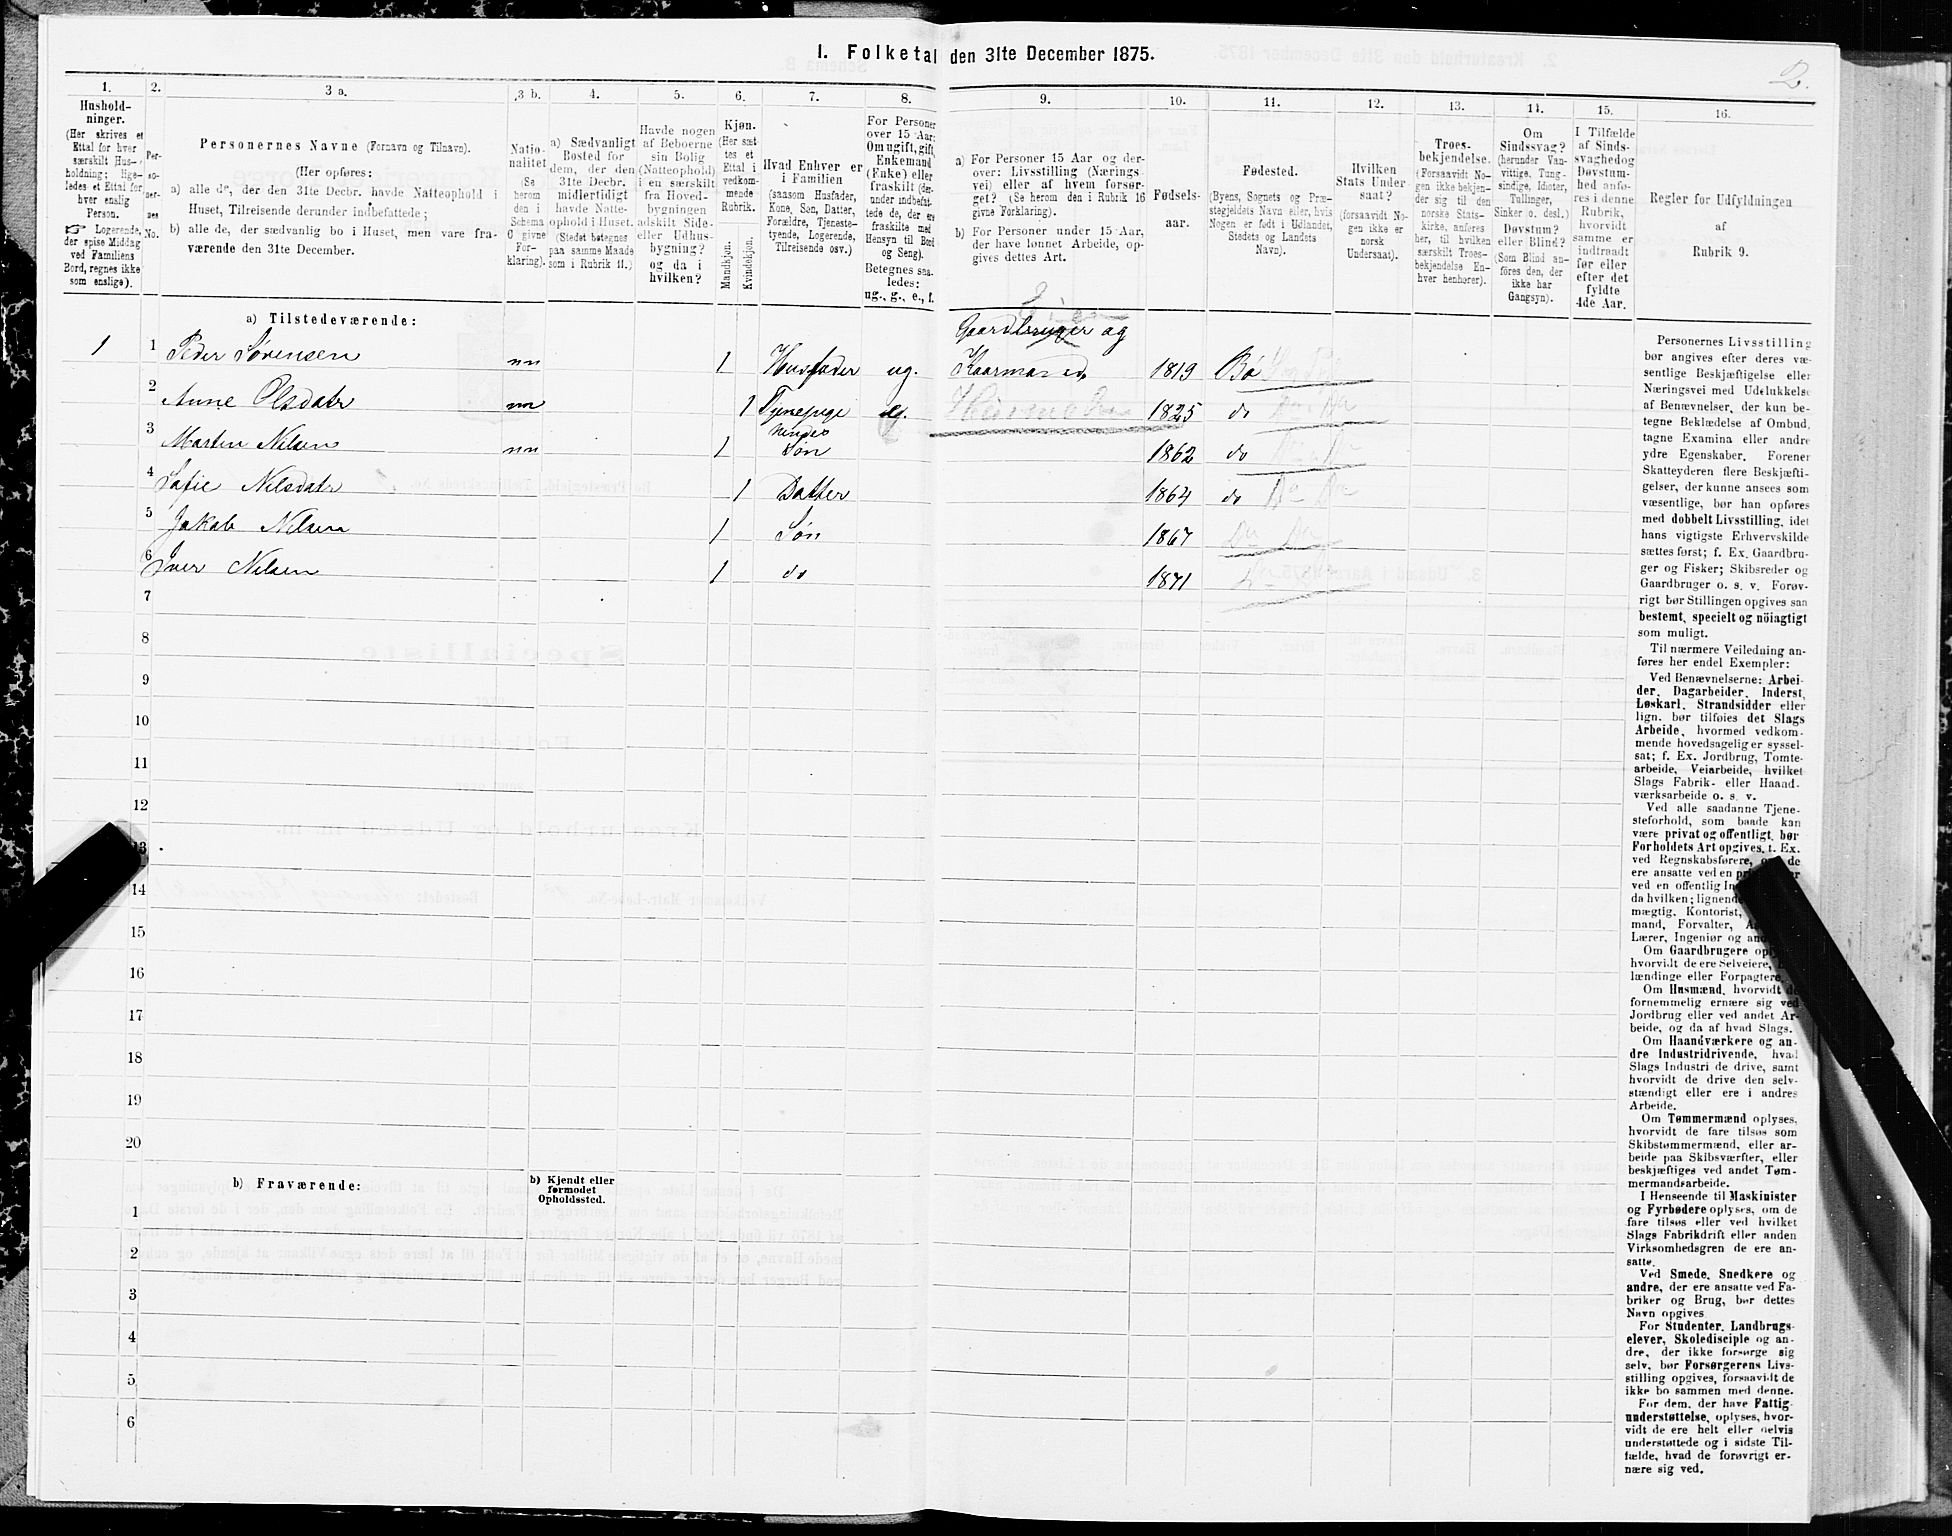 I. Folketal den 31te December 1875.
2.
1.
Hushold-
ninger.
(Her skrives et
Ettal for hver
særskilt Hus-
holdning; lige-
ledes et Ettal for
hver enslig
Person.
☞ Logerende,
der spise Middag
ved Familiens
Bord, regnes ikke
som enslige).
2.
Per-
so-
ner-
nes
No.
3 a.
Personernes Navne (Fornavn og Tilnavn).
(Her opføres:
a) alle de, der den 31te Decbr. havde Natteophold i
Huset, Tilreisende derunder indbefattede;
b) alle de, der sædvanlig bo i Huset, men vare fra-
værende den 31te December.
3 b.
Natio-
nalitet
(Se
herom
den i
Schema
O givne
For-
klaring).
4.
a) Sædvanligt
Bosted for
dem, der den
31te Decbr.
midlertidigt
havde Natte-
ophold i Huset.
(Stedet betegnes
paa samme Maade
som i Rubrik 11.)
5.
Havde nogen
af Beboerne
sin Bolig
(Natteophold)
i en særskilt
fra Hoved-
bygningen
adskilt Side-
eller Udhus-
bygning?
og da i
hvilken?
6.
Kjøn.
(Her sæt-
tes et
Ettal i
vedkom-
mende
Rubrik.
Mandkjøn.
Kvindekjøn.
7.
Hvad Enhver er
i Familien
(saasom Husfader,
Kone, Søn, Datter,
Forældre, Tjeneste-
tyende, Logerende,
Tilreisende osv.)
8.
For Personer
over 15 Aar:
Om ugift, gift,
Enkemand
(Enke) eller
fraskilt (der-
under indbefat-
tede de, der ere
fraskilte med
Hensyn til Bord
og Seng).
Betegnes saa-
ledes:
ug., g., e., f.
9.
a) For Personer 15 Aar og der-
over: Livsstilling (Nærings-
vei) eller af hvem forsør-
get? (Se herom den i Rubrik 16
givne Forklaring).
b) For Personer under 15 Aar,
der have lønnet Arbeide, op-
gives dettes Art.
10.
Fødsels-
aar.
11.
Fødested.
(Byens, Sognets og Præ-
stegjeldets Navn eller, hvis
Nogen er født i Udlandet,
Stedets og Landets
Navn).
12.
Hvilken
Stats Under-
saat?
(forsaavidt No-
gen ikke er
norsk
Undersaat).
13.
Troes-
bekjendelse.
(Forsaavidt No-
gen ikke bekjen-
der sig til den
norske Stats-
kirke, anføres
her, til hvilken
særskilt Troes-
bekjendelse En-
hver henhører).
14.
Om
Sindssvag?
(herunder Van-
vittige, Tung-
sindige, Idioter,
Tullinger,
Sinker o. desl.)
Døvstum?
eller Blind?
(Som Blind an-
føres den, der
ikke har
Gangsyn).
15.
I Tilfælde
af Sinds-
svaghed og
Døvstum-
hed anfø-
res i denne
Rubrik,
hvorvidt
samme er
indtraadt
før eller
efter det
fyldte
4de Aar.
16.
Regler for Udfyldningen
af
Rubrik 9.
a) Tilstedeværende:
Gaardbruger og
1 1 Peder Sørensen nn 1 Husfader ug. Kaarmand 1819 Bø
2 Anne Olsdatr nn 1 Tjenepige 1825 do
3 Martin Nilsen nn 1 hendes Søn 1862 do
4 Sofie Nilsdatr 1 Datter 1864 do Do Do
5 Jakob Nilsen 1 Søn 1867 Do Do
6 Iver Nilsen 1 do 1871 Do
7
8
9
10
11
12
13
14
15
16
17
18
19
20
b) Fraværende:
b) Kjendt eller
formodet
Opholdssted.
1
2
3
4
5
6
Personernes Livsstilling
bør angives efter deres væ-
sentlige Beskjæftigelse eller
Næringsvei med Udelukkelse
af Benævnelser, der kun be-
tegne Beklædelse af Ombud,
tagne Examina eller andre
ydre Egenskaber. Forener
Skatteyderen flere Beskjæfti-
gelser, der kunne ansees som
væsentlige, bør han opføres
med dobbelt Livsstilling, idet
hans vigtigste Erhvervskilde
sættes først; f. Ex. Gaardbru-
ger og Fisker; Skibsreder og
Gaardbruger o. s. v. Forøv-
rigt bør Stillingen opgives saa
bestemt, specielt og nöiagtigt
som muligt.
Til nærmere Veiledning an-
føres her endel Exempler:
Ved Benævnelserne: Arbei-
der, Dagarbeider, Inderst,
Løskarl, Strandsidder eller
lign. bør tilføies det Slags
Arbeide, hvormed vedkom-
mende hovedsagelig er syssel-
sat; f. Ex. Jordbrug, Tomte-
arbeide, Veiarbeide, hvilket
Slags Fabrik- eller Haand-
værksarbeide o. s. v.
Ved alle saadanne Tjene-
steforhold, som baade kan
være privat og offentligt, bør
Forholdets Art opgives, f. Ex.
ved Regnskabsførere, de
ere ansatte ved en
ved en offentlig
da hvilken; lignende
mægtig, Kontorist,
mand, Forvalter,
Lærer, Ingeniør og
Om Gaardbrugere
hvorvidt de ere Selveiere,
lændinge eller Forpagtere.
Om Husmænd, hvorvidt de
fornemmelig ernære sig ved
Jordbrug eller ved andet Ar-
beide, og da af hvad Slags.
Om Haandværkere og an-
dre Industridrivende, hvad
Slags Industri de drive, samt
hvorvidt de drive den selv-
stændigt eller ere i andres
Arbeide.
Om Tømmermænd oplyses,
hvorvidt de fare tilsøs som
Skibstømmermænd, eller ar-
beide paa Skibsværfter, eller
beskjæftiges ved andet Tøm-
mermandsarbeide.
I Henseende til Maskinister
og Fyrbødere oplyses, om de
fare tilsøs eller ved hvilket
Slags Fabrikdrift eller anden
Virksomhedsgren de ere an-
satte.
Ved Smede, Snedkere og
andre, der ere ansatte ved Fa-
briker og Brug, bør dettes
Navn opgives
For Studenter, Landbrugs-
elever, Skoledisciple og an-
dre, der ikke forsørge sig
selv, bør Forsørgerens Livs-
stilling opgives, forsaavidt de
ikke bo sammen med denne.
For dem, der have Fattig-
understøttelse, oplyses, hvor-
vidt de ere helt eller delvis
understøttede og i sidste Til-
fælde, hvad de forøvrigt er-
nære sig ved.